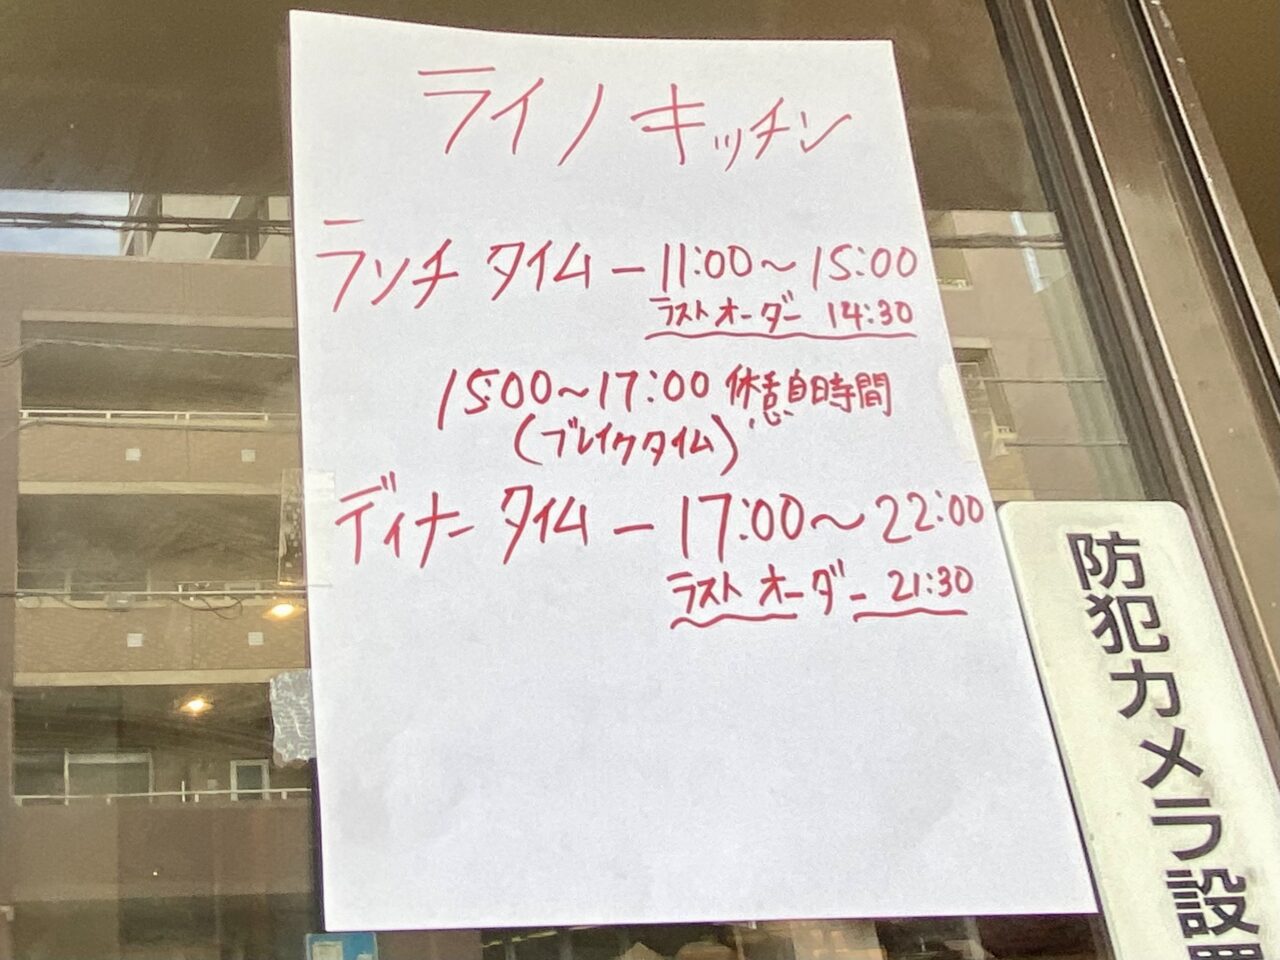 ライノキッチン
ランチタイム－11:00～15:00
ラストオーダー 14:30
15:00～17:00 休憩時間
(ブレイクタイム)
ディナータイム－17:00～22:00
ラストオーダー 21:30
防犯カメラ設置